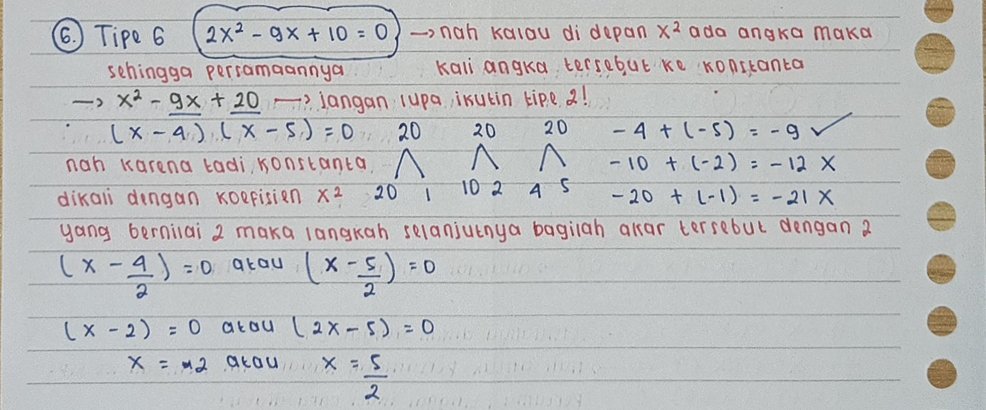 6. Tipe 6 2x² - 9x + 10 = 0 → nah kalau di depan x² ada angka maka
sehingga persamaannya kali angka tersebut ke konstanta
→ x² - 9x + 20 → jangan lupa ikutin tipe 2!
(x - 4) (x - 5) = 0 20 20 20 -4 + (-5) = -9 ✓
nah karena tadi konstanta -10 + (-2) = -12 X
dikali dengan koefisien x² 20 1 10 2 4 5 -20 + (-1) = -21 X
yang bernilai 2 maka langkah selanjutnya bagilah akar tersebut dengan 2
(x - 4/2) = 0 atau (x - 5/2) = 0
(x - 2) = 0 atau (2x - 5) = 0
x = 2 atau x = 5/2